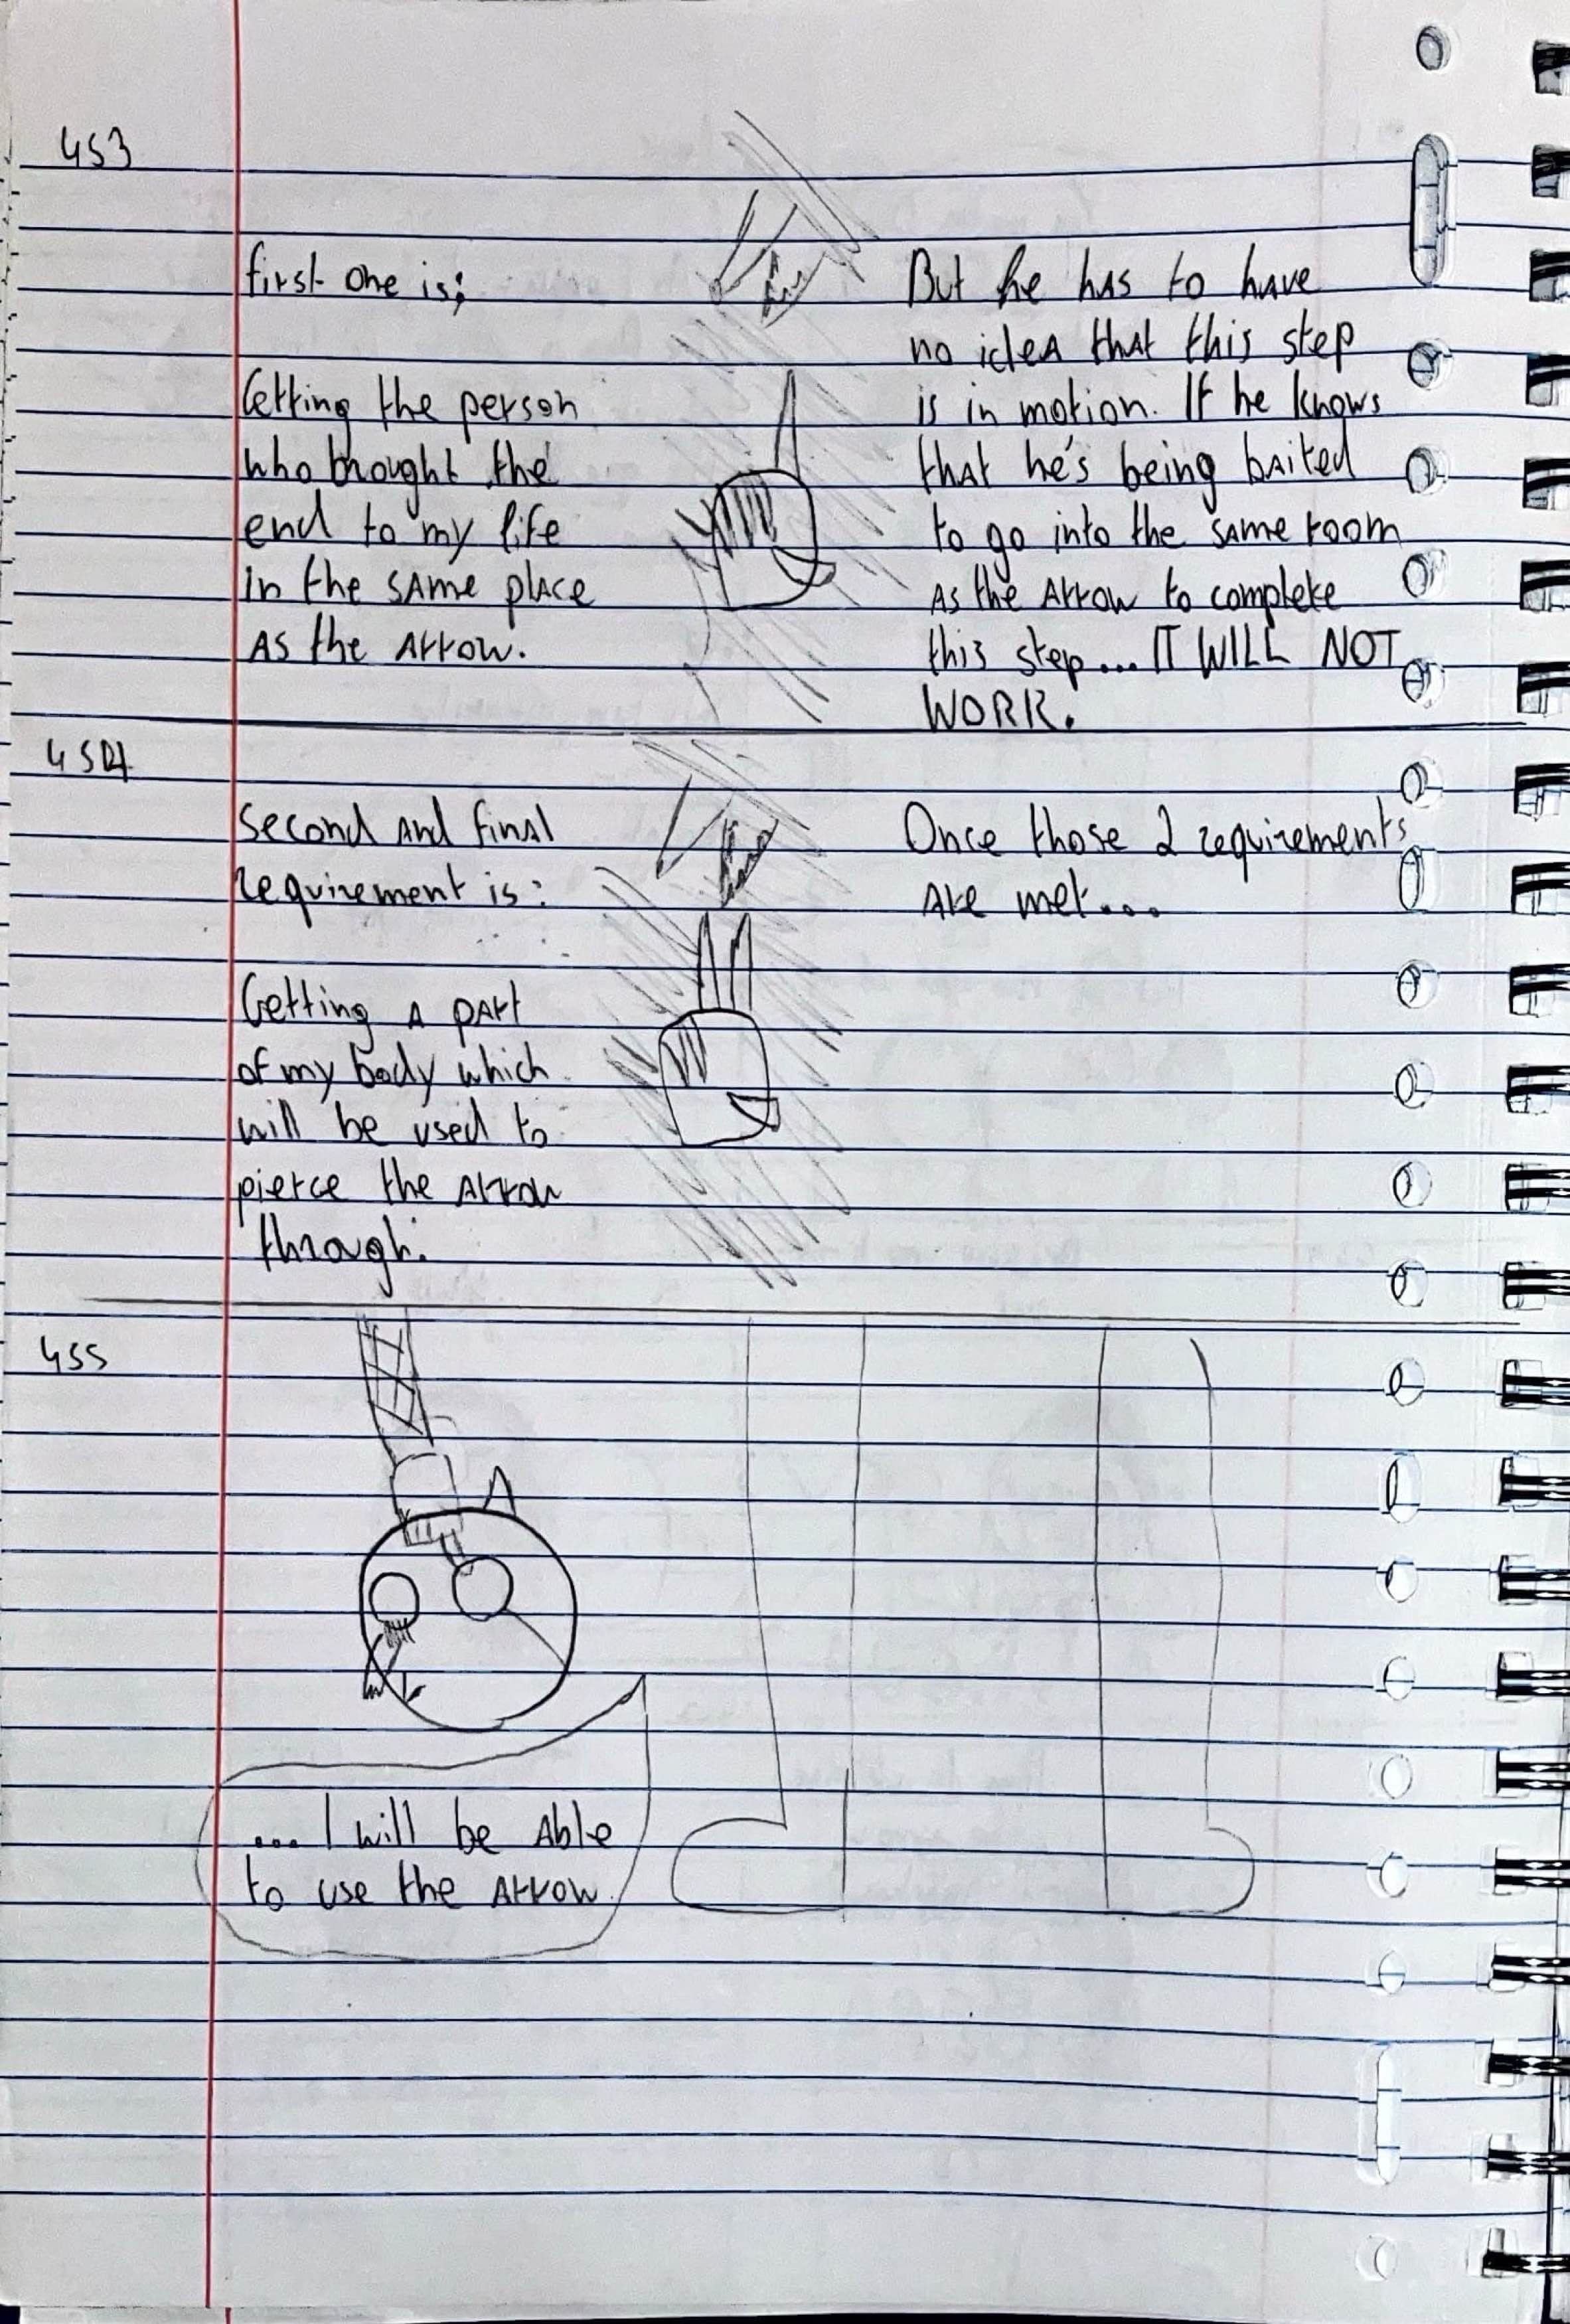 453
first one is;
Getting the person
who brought the
end to my life
in the same place
As the Arrow.
But he has to have
no idea that this step
is in motion. If he knows
that he's being baited
to go into the same room
As the Arrow to complete
this step... IT WILL NOT
WORK.
454
Second and final
requirement is:
Getting A part
of my body which
will be used to
pierce the Arrow
through.
Once those 2 requirements
Are met...
455
... I will be Able
to use the Arrow.